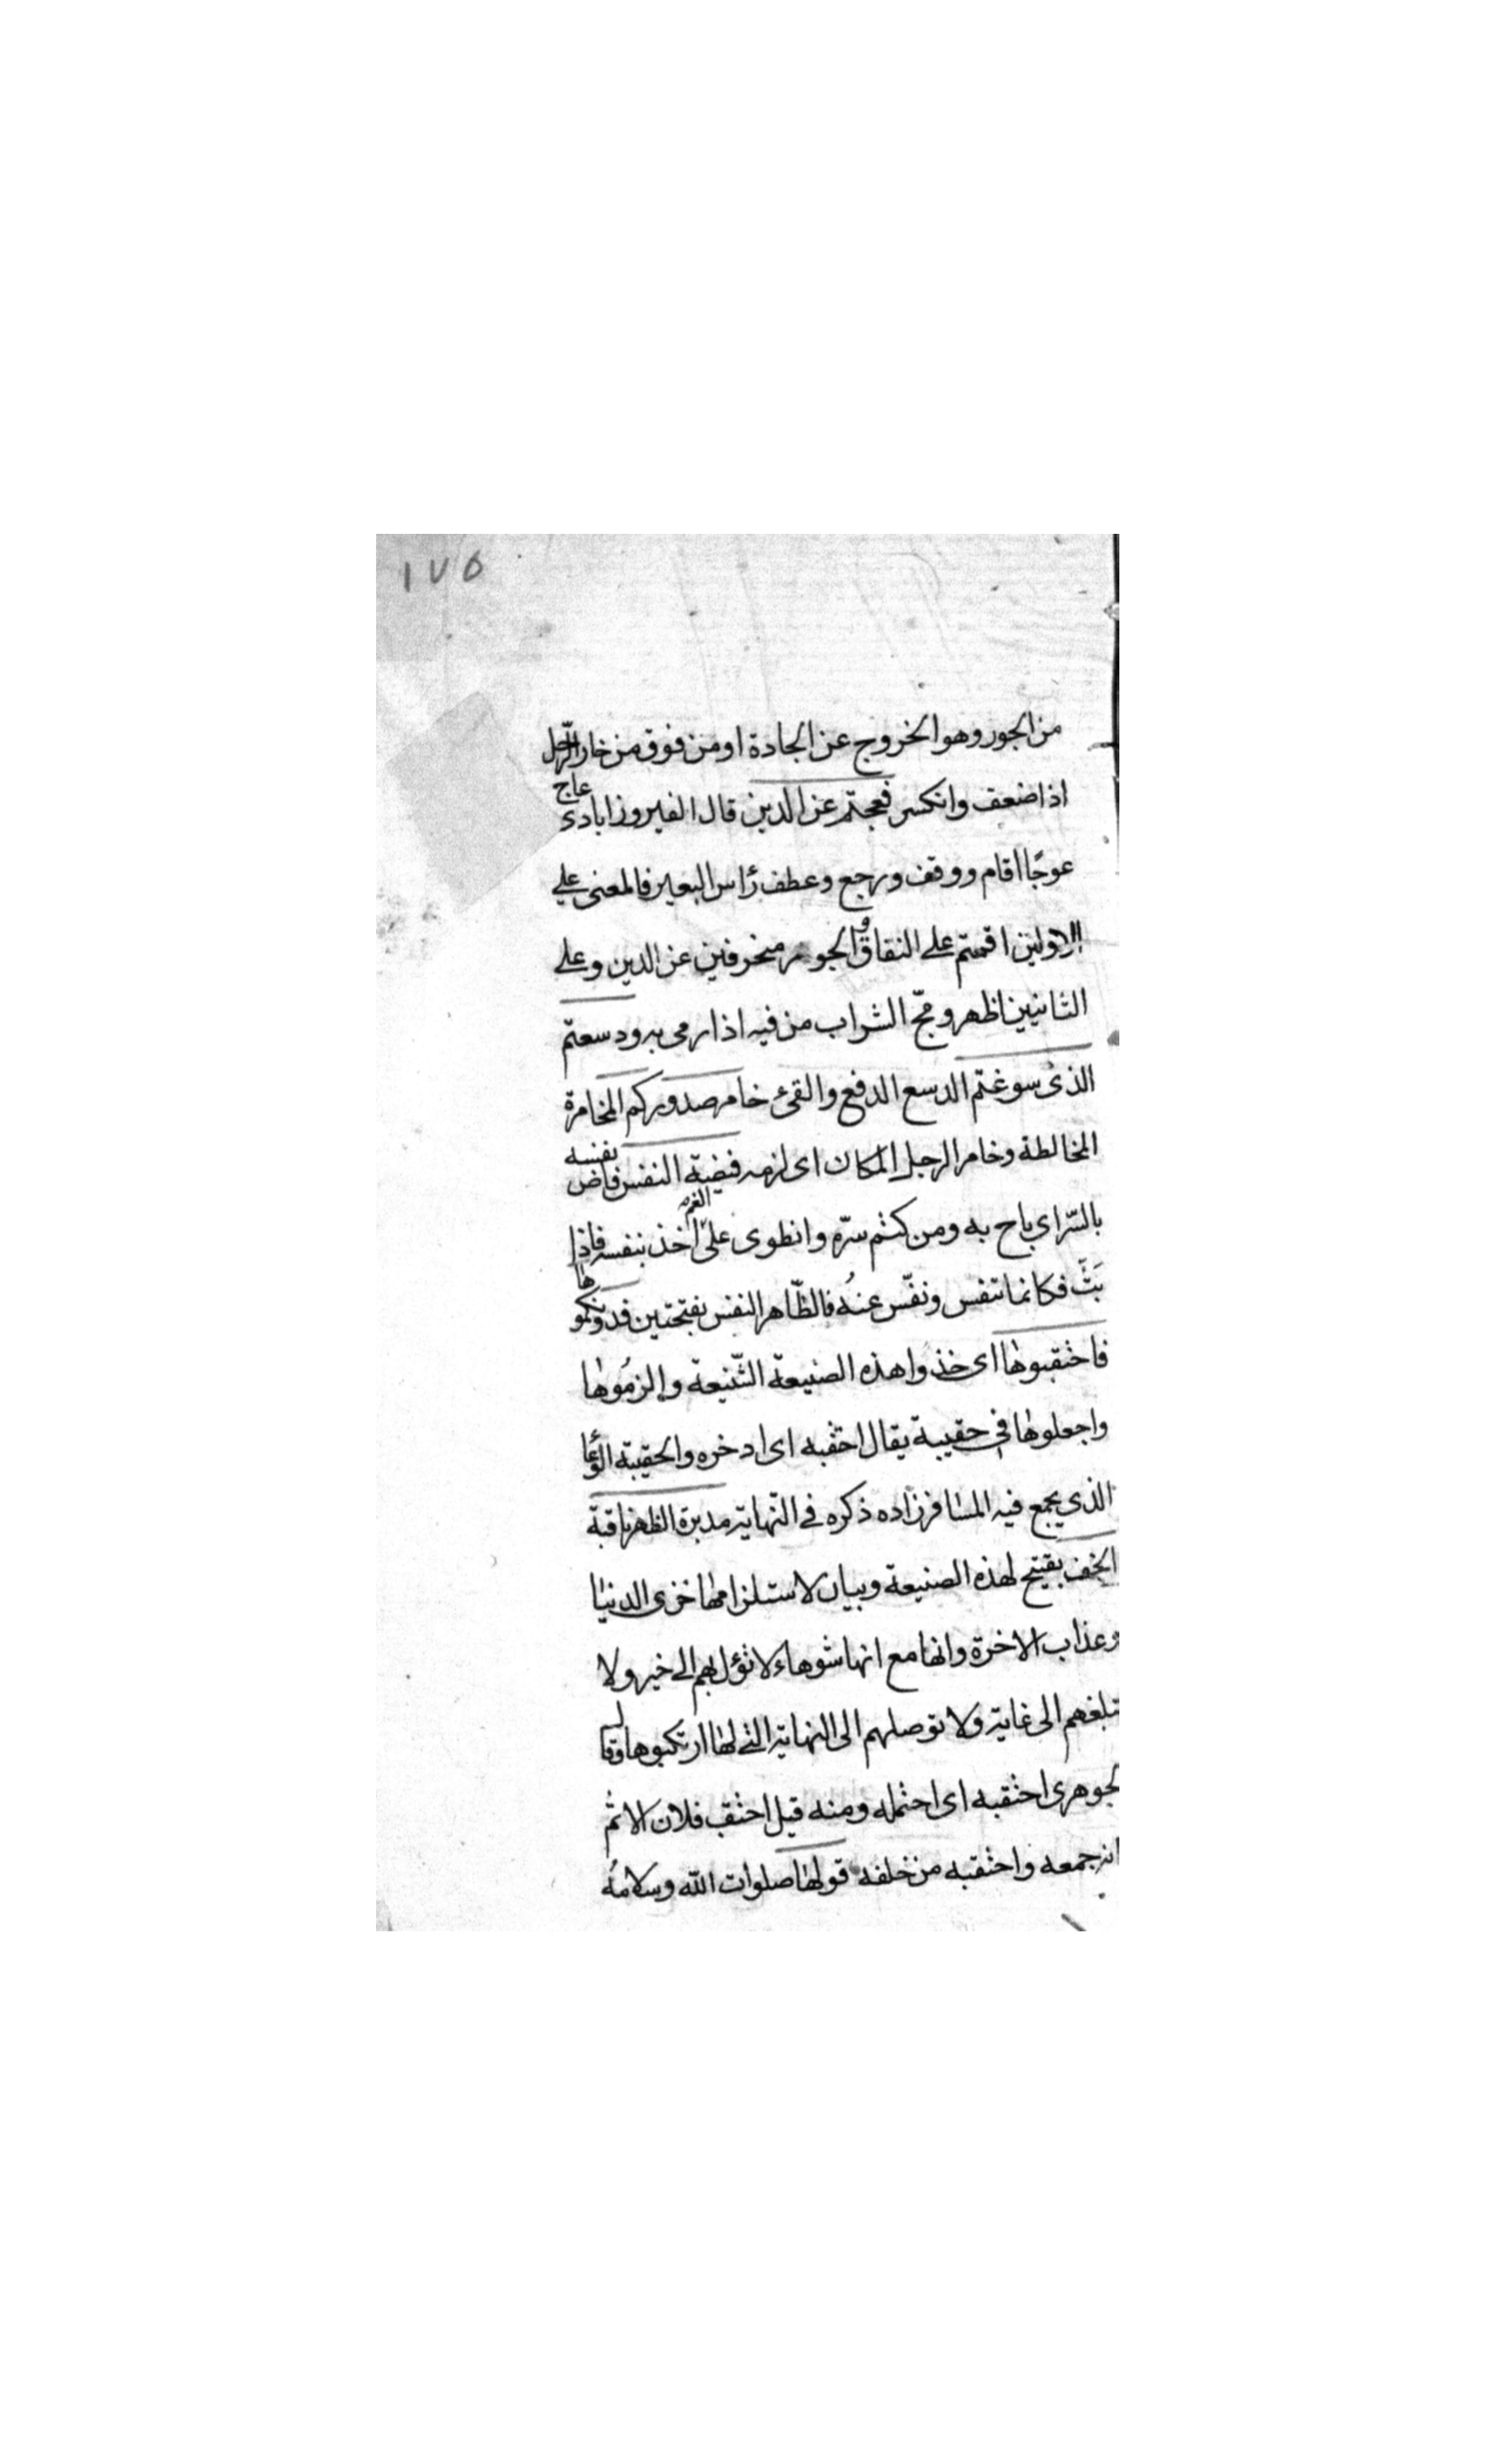 ١٧٥
من الجور وهو الخروج عن الجادة او من فوق من خار الرّجل
اذا ضعف وانكسر فعجتم عن الدين قال الفيروزابادى عاج
عوجًا اقام ووقف ورجع وعطف رأس البعير فالمعنى على
الاولين اقمتم على النفاق و الجور منحرفين عن الدين وعلى
الثانيين اظهر ومجّ الشراب من فيه اذا رمى به ودسعتم
الذى سوغتم الدسع الدفع والقئ خامر صدوركم المخامرة
المخالطة وخامر الرجل المكان اى لزمه فيضة النفس فاض نفسه
بالسّر اى باح به ومن كتم سرّه وانطوى على الغم اخذ بنفسه فاذا
بَثَّ فكانما تنفس ونفّس عنهُ فالظّاهر النفس بفتحتين فدونكموها
فاحتقبوها اى خذوا هذه الصنيعة الشّنيعة والزمُوها
واجعلوها فى حقيبة يقال احتقبه اى ادخره والحقيبة الوعَا
الذى يجمع فيه المسافر زاده ذكره فى النّهاية مدبرة الظهر ناقبة
الخف بقيتح لهذه الصنيعة وبيان لاستلزامها خزى الدنيا
وعذاب الاخرة وانها مع انها شوهاء لا تؤل بهم الى خير ولا
تبلغهم الى غاية ولا توصلهم الى النهاية التى لها ارتكبوها وقال
لجوهرى احتقبه اى احتمله ومنه قيل احتقب فلان الاثم
انه جمعه واحتقبه من خلفه قولها صلوات الله وسلامُه